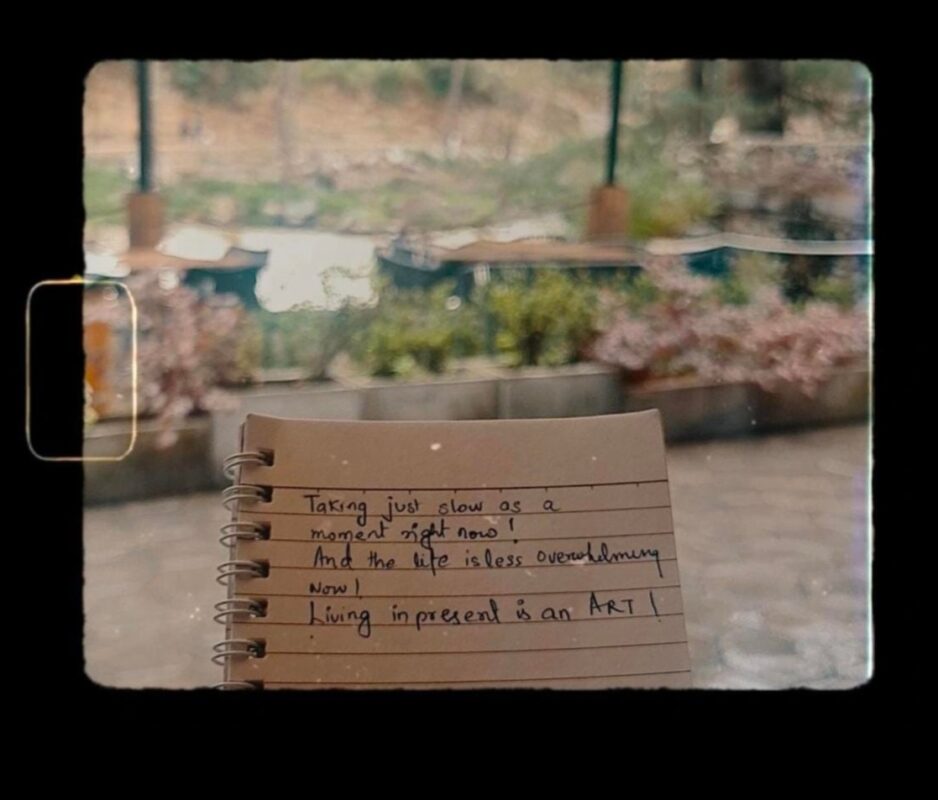 Taking just slow as a
moment right now !
And the life is less overwhelming
Now !
Living in present is an ART !